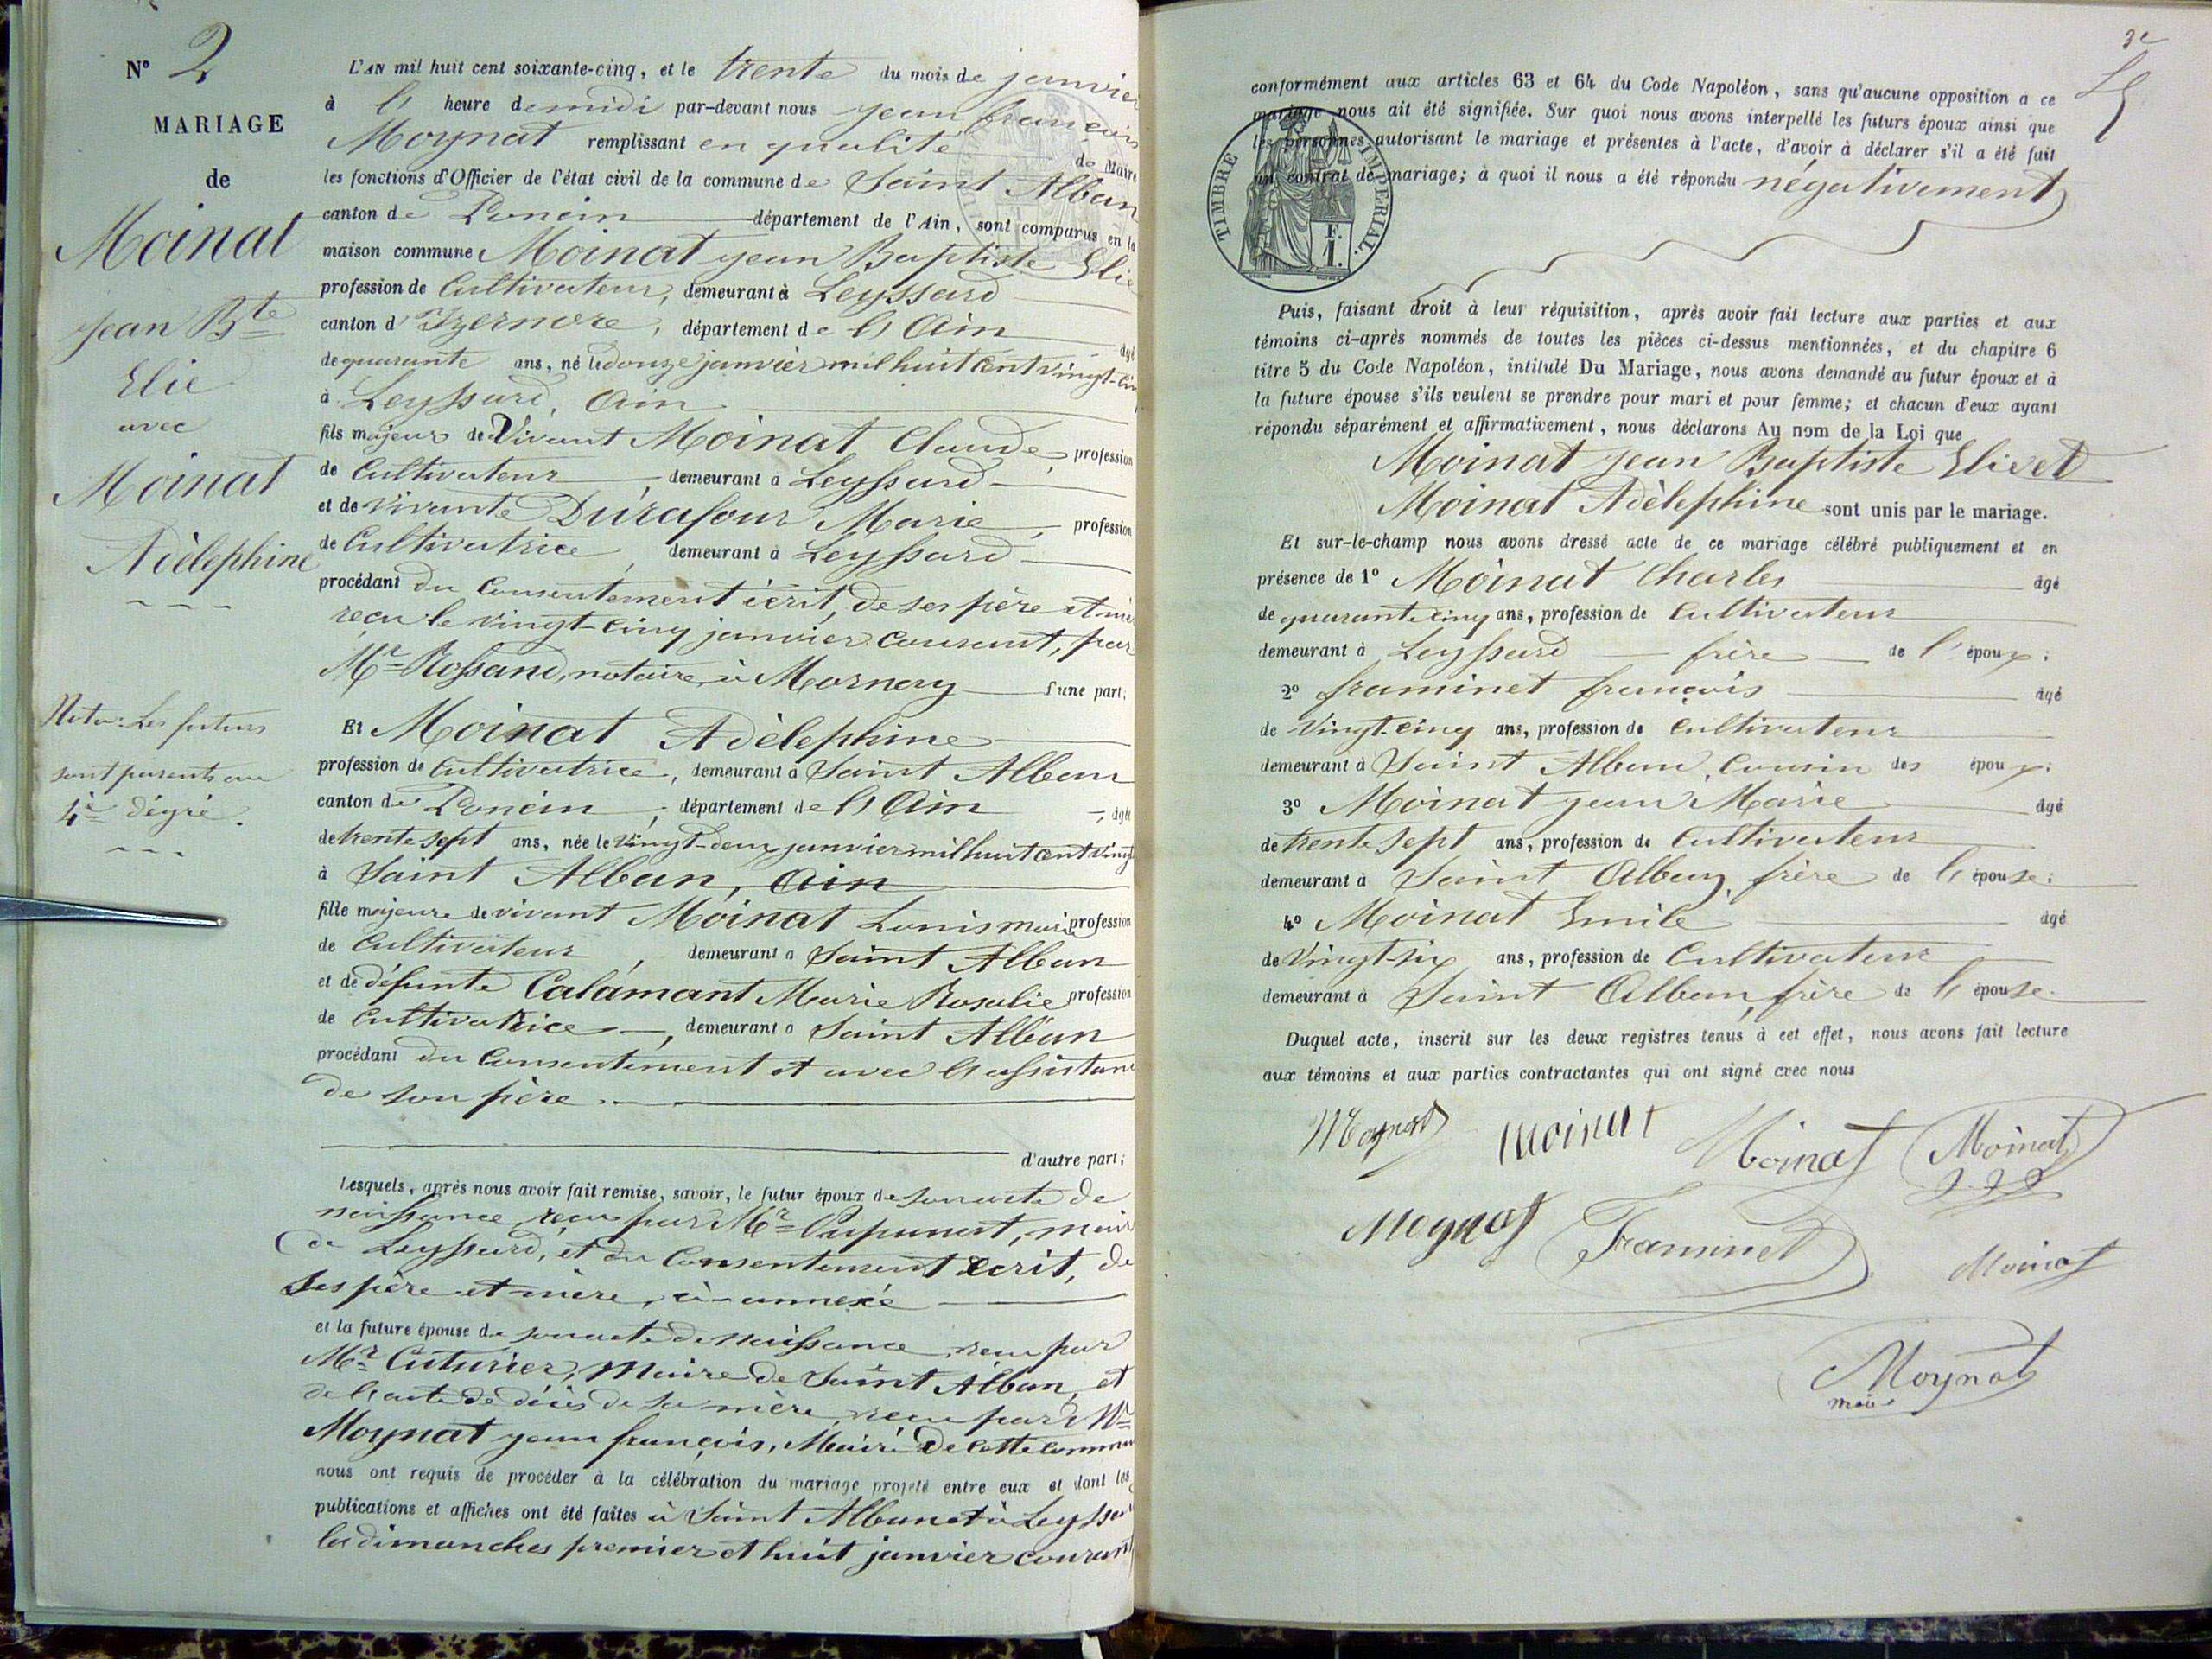 N° 2
MARIAGE
de
Moinat
Jean Bte
Elie
avec
Moinat
Adèlephine
Nota: Les futurs
sont parents au
4e dégré.
L'AN mil huit cent soixante-cinq, et le trente du mois de janvier
à l' heure de midi par-devant nous jean françois
Moynat remplissant en qualité de Maire
les fonctions d'Officier de l'état civil de la commune de Saint Alban
canton de Poncin département de l'Ain, sont comparus en la
maison commune Moinat jean Baptiste Elie
profession de Cultivateur, demeurant à Leyssard
canton d'Izernore, département de l'Ain âgé
de quarante ans, né le douze janvier mil huit cent vingt-cinq
à Leyssard, Ain
fils majeur de vivant Moinat Claude, profession
de Cultivateur, demeurant à Leyssard
et de vivante Durafour Marie, profession
de Cultivatrice, demeurant à Leyssard
procédant du consentement écrit, de ses père et mère
reçu le vingt-cinq janvier courant, par
Mr Rossand, notaire à Mornay d'une part;
Et Moinat Adèlephine
profession de Cultivatrice, demeurant à Saint Alban
canton de Poncin, département de l'Ain, âgée
de trente sept ans, née le vingt-deux janvier mil huit cent vingt
à Saint Alban, Ain
fille majeure de vivant Moinat Louis marie profession
de Cultivateur, demeurant à Saint Alban
et de défunte Calamant Marie Rosalie profession
de Cultivatrice, demeurant à Saint Alban
procédant du Consentement et avec l'assistance
de son père.
d'autre part;
Lesquels, après nous avoir fait remise, savoir, le futur époux de son acte de
naissance, reçu par Mr maire
de Leyssard, et du Consentement écrit, de
ses père et mère, ci-annexé
et la future épouse de son acte de naissance, reçu par
Mr Cuturier, Maire de Saint Alban, et
de l'acte de décès de sa mère, reçu par Mr
Moynat jean françois, Maire de cette commune
nous ont requis de procéder à la célébration du mariage projeté entre eux et dont les
publications et affiches ont été faites à Saint Alban et à Leyssard
les dimanches premier et huit janvier courant
conformément aux articles 63 et 64 du Code Napoléon, sans qu'aucune opposition à ce
mariage nous ait été signifiée. Sur quoi nous avons interpellé les futurs époux ainsi que
les personnes autorisant le mariage et présentes à l'acte, d'avoir à déclarer s'il a été fait
un contrat de mariage; à quoi il nous a été répondu négativement
TIMBRE IMPERIAL.
F.
1.
Puis, faisant droit à leur réquisition, après avoir fait lecture aux parties et aux
témoins ci-après nommés de toutes les pièces ci-dessus mentionnées, et du chapitre 6
titre 5 du Code Napoléon, intitulé Du Mariage, nous avons demandé au futur époux et à
la future épouse s'ils veulent se prendre pour mari et pour femme; et chacun d'eux ayant
répondu séparément et affirmativement, nous déclarons Au nom de la Loi que
Moinat jean Baptiste Elie et
Moinat Adèlephine sont unis par le mariage.
Et sur-le-champ nous avons dressé acte de ce mariage célébré publiquement et en
présence de 1° Moinat Charles âgé
de quarante cinq ans, profession de Cultivateur
demeurant à Leyssard frère de l'époux;
2° framinet françois âgé
de vingt-cinq ans, profession de Cultivateur
demeurant à Saint Alban, Cousin des époux;
3° Moinat jean Marie âgé
de trente sept ans, profession de Cultivateur
demeurant à Saint Alban, frère de l'épouse;
4° Moinat Emile âgé
de vingt-six ans, profession de Cultivateur
demeurant à Saint Alban, frère de l'épouse.
Duquel acte, inscrit sur les deux registres tenus à cet effet, nous avons fait lecture
aux témoins et aux parties contractantes qui ont signé avec nous
Moynat moinat Moinat Moinat
Moynat Framinet Moinat
Moynat
maire